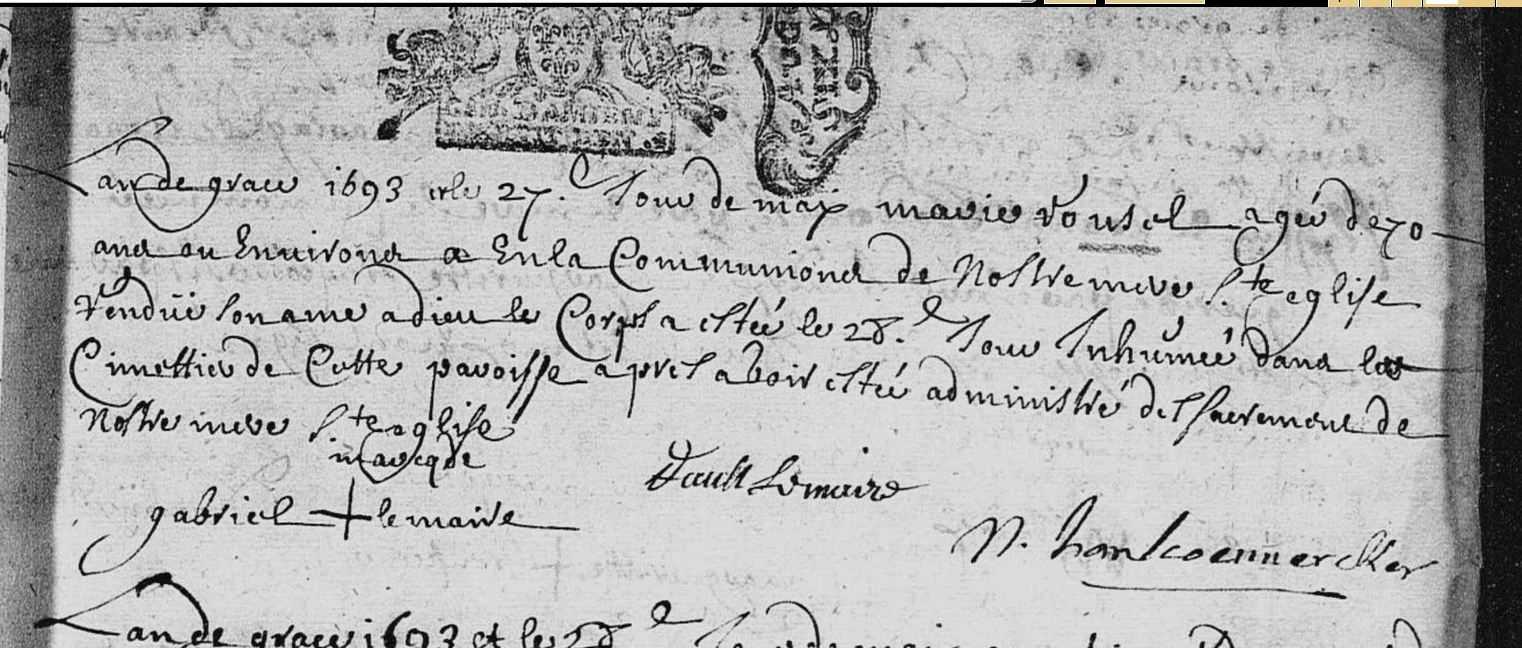 GEN. D'AMIENS
Lan de grace 1693 et le 27.e Jour de may marie rousel agée de 70
ans ou Environs a En la Communions de Nostre mere S.te eglise
rendüe son ame a dieu le Corps a esteé le 28.e Jour Inhumeé dans le
Cimettier de Cette paroisse apres avoir esteé administré des sacrement de
Nostre mere S.te eglise
marcq de
gabriel + lemaire
Paull Lemaire
N.
Lan de grace 1693 et le 28 e